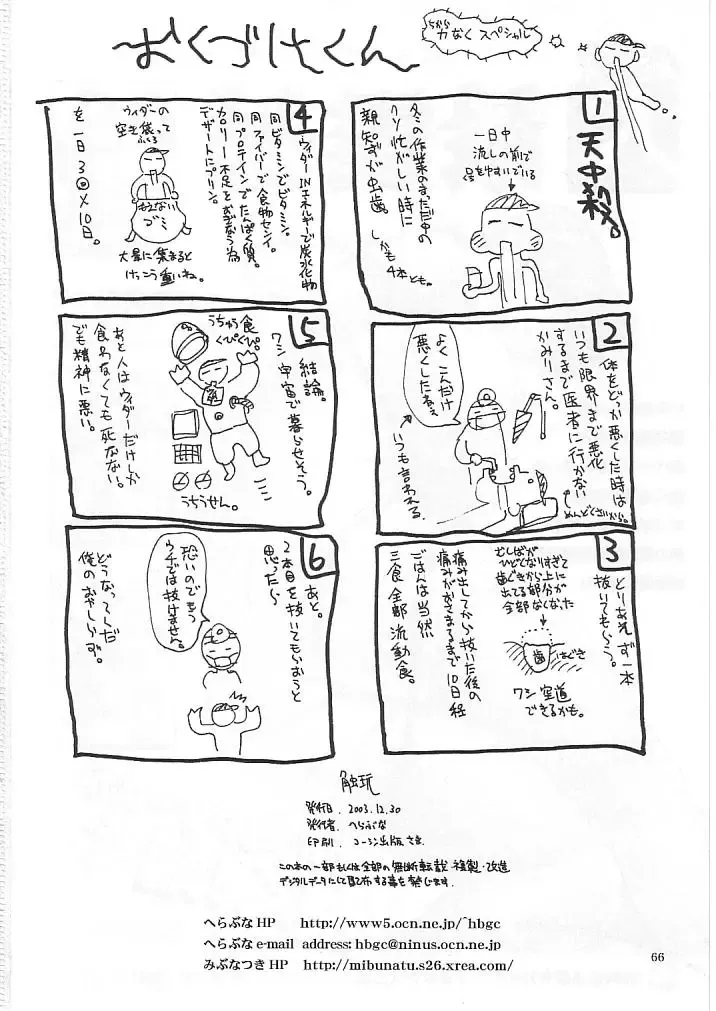 おくづけくん
ちから
力なくスペシャル
1
天中殺。
冬の作業のまっただ中の
クソ忙がしい時に
親知ずが虫歯。
しかも4本とも。
一日中
流しの前で
口をゆすいでいる
2
体をどっか悪くした時は
いつも限界まで悪化
するまで医者に行かない
かみりさん。
めんどくさいから。
よくこんだけ
悪くしたねぇ
いつも言われる
3
とりあえず一本
抜いてもらう。
むしばが
ひどくなりすぎて
歯ぐきから上に
出てる部分が
全部なくなった
歯
はぐき
ワシ空道
できるかも。
痛み出してから抜いた後の
痛みがおさまるまで10日程
ごはんは当然
三食全部流動食。
4
ウィダーINエネルギーで炭水化物
同ビタミンでビタミン。
同ファイバーで食物センイ。
同プロテインでたんぱく質。
カロリー不足をおぎなう為
デザートにプリン。
ウィダーの
空き袋って
ふくろ
もえない
ゴミ
大量に集まると
けっこう重いね。
を一日3回×10日。
5
結論。
ワシ宇宙で暮らせそう。
うちゅう食
くぴくぴ。
うちうせん。
あと人はウィダーだけしか
食わなくても死なない。
でも精神に悪い。
6
あと。
2本目を抜いてもらおうと
思ったら
恐いのでもう
ウチでは抜けません。
どうなってんだ
俺のおやしらず。
触玩
発行日. 2003.12.30
発行者. へらぶな
印刷. コーシン出版さま
この本の一部もしくは全部の無断転載・複製・改造
デジタルデータにして配布する事を禁じます.
へらぶな HP http://www5.ocn.ne.jp/~hbgc
へらぶな e-mail address: hbgc@ninus.ocn.ne.jp
みぶなつき HP http://mibunatu.s26.xrea.com/
66